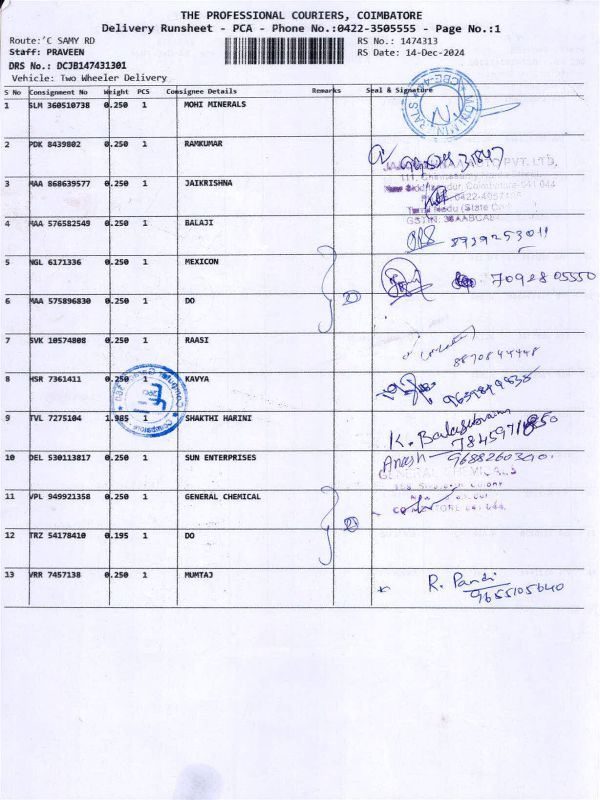 THE PROFESSIONAL COURIERS, COIMBATORE
Delivery Runsheet - PCA - Phone No.:0422-3505555 - Page No.:1
Route:'C SAMY RD
RS No.: 1474313
Staff: PRAVEEN
RS Date: 14-Dec-2024
DRS No.: DCJB147431301
Vehicle: Two Wheeler Delivery
S No Consignment No Weight PCS Consignee Details Remarks Seal & Signature
1 SLM 360510738 0.250 1 MOHI MINERALS
2 PDK 8439802 0.250 1 RAMKUMAR
3 MAA 868639577 0.250 1 JAIKRISHNA
4 MAA 576582549 0.250 1 BALAJI 8939253011
5 NGL 6171336 0.250 1 MEXICON 7092805550
6 MAA 575896830 0.250 1 DO
7 SVK 10574808 0.250 1 RAASI 8870844448
8 HSR 7361411 0.250 1 KAVYA
9 TVL 7275104 1.985 1 SHAKTHI HARINI K. Balasubram
10 DEL 530113817 0.250 1 SUN ENTERPRISES
11 VPL 949921358 0.250 1 GENERAL CHEMICAL
12 TRZ 54178410 0.195 1 DO
13 VRR 7457138 0.250 1 MUMTAJ R. Pandi
9655105640